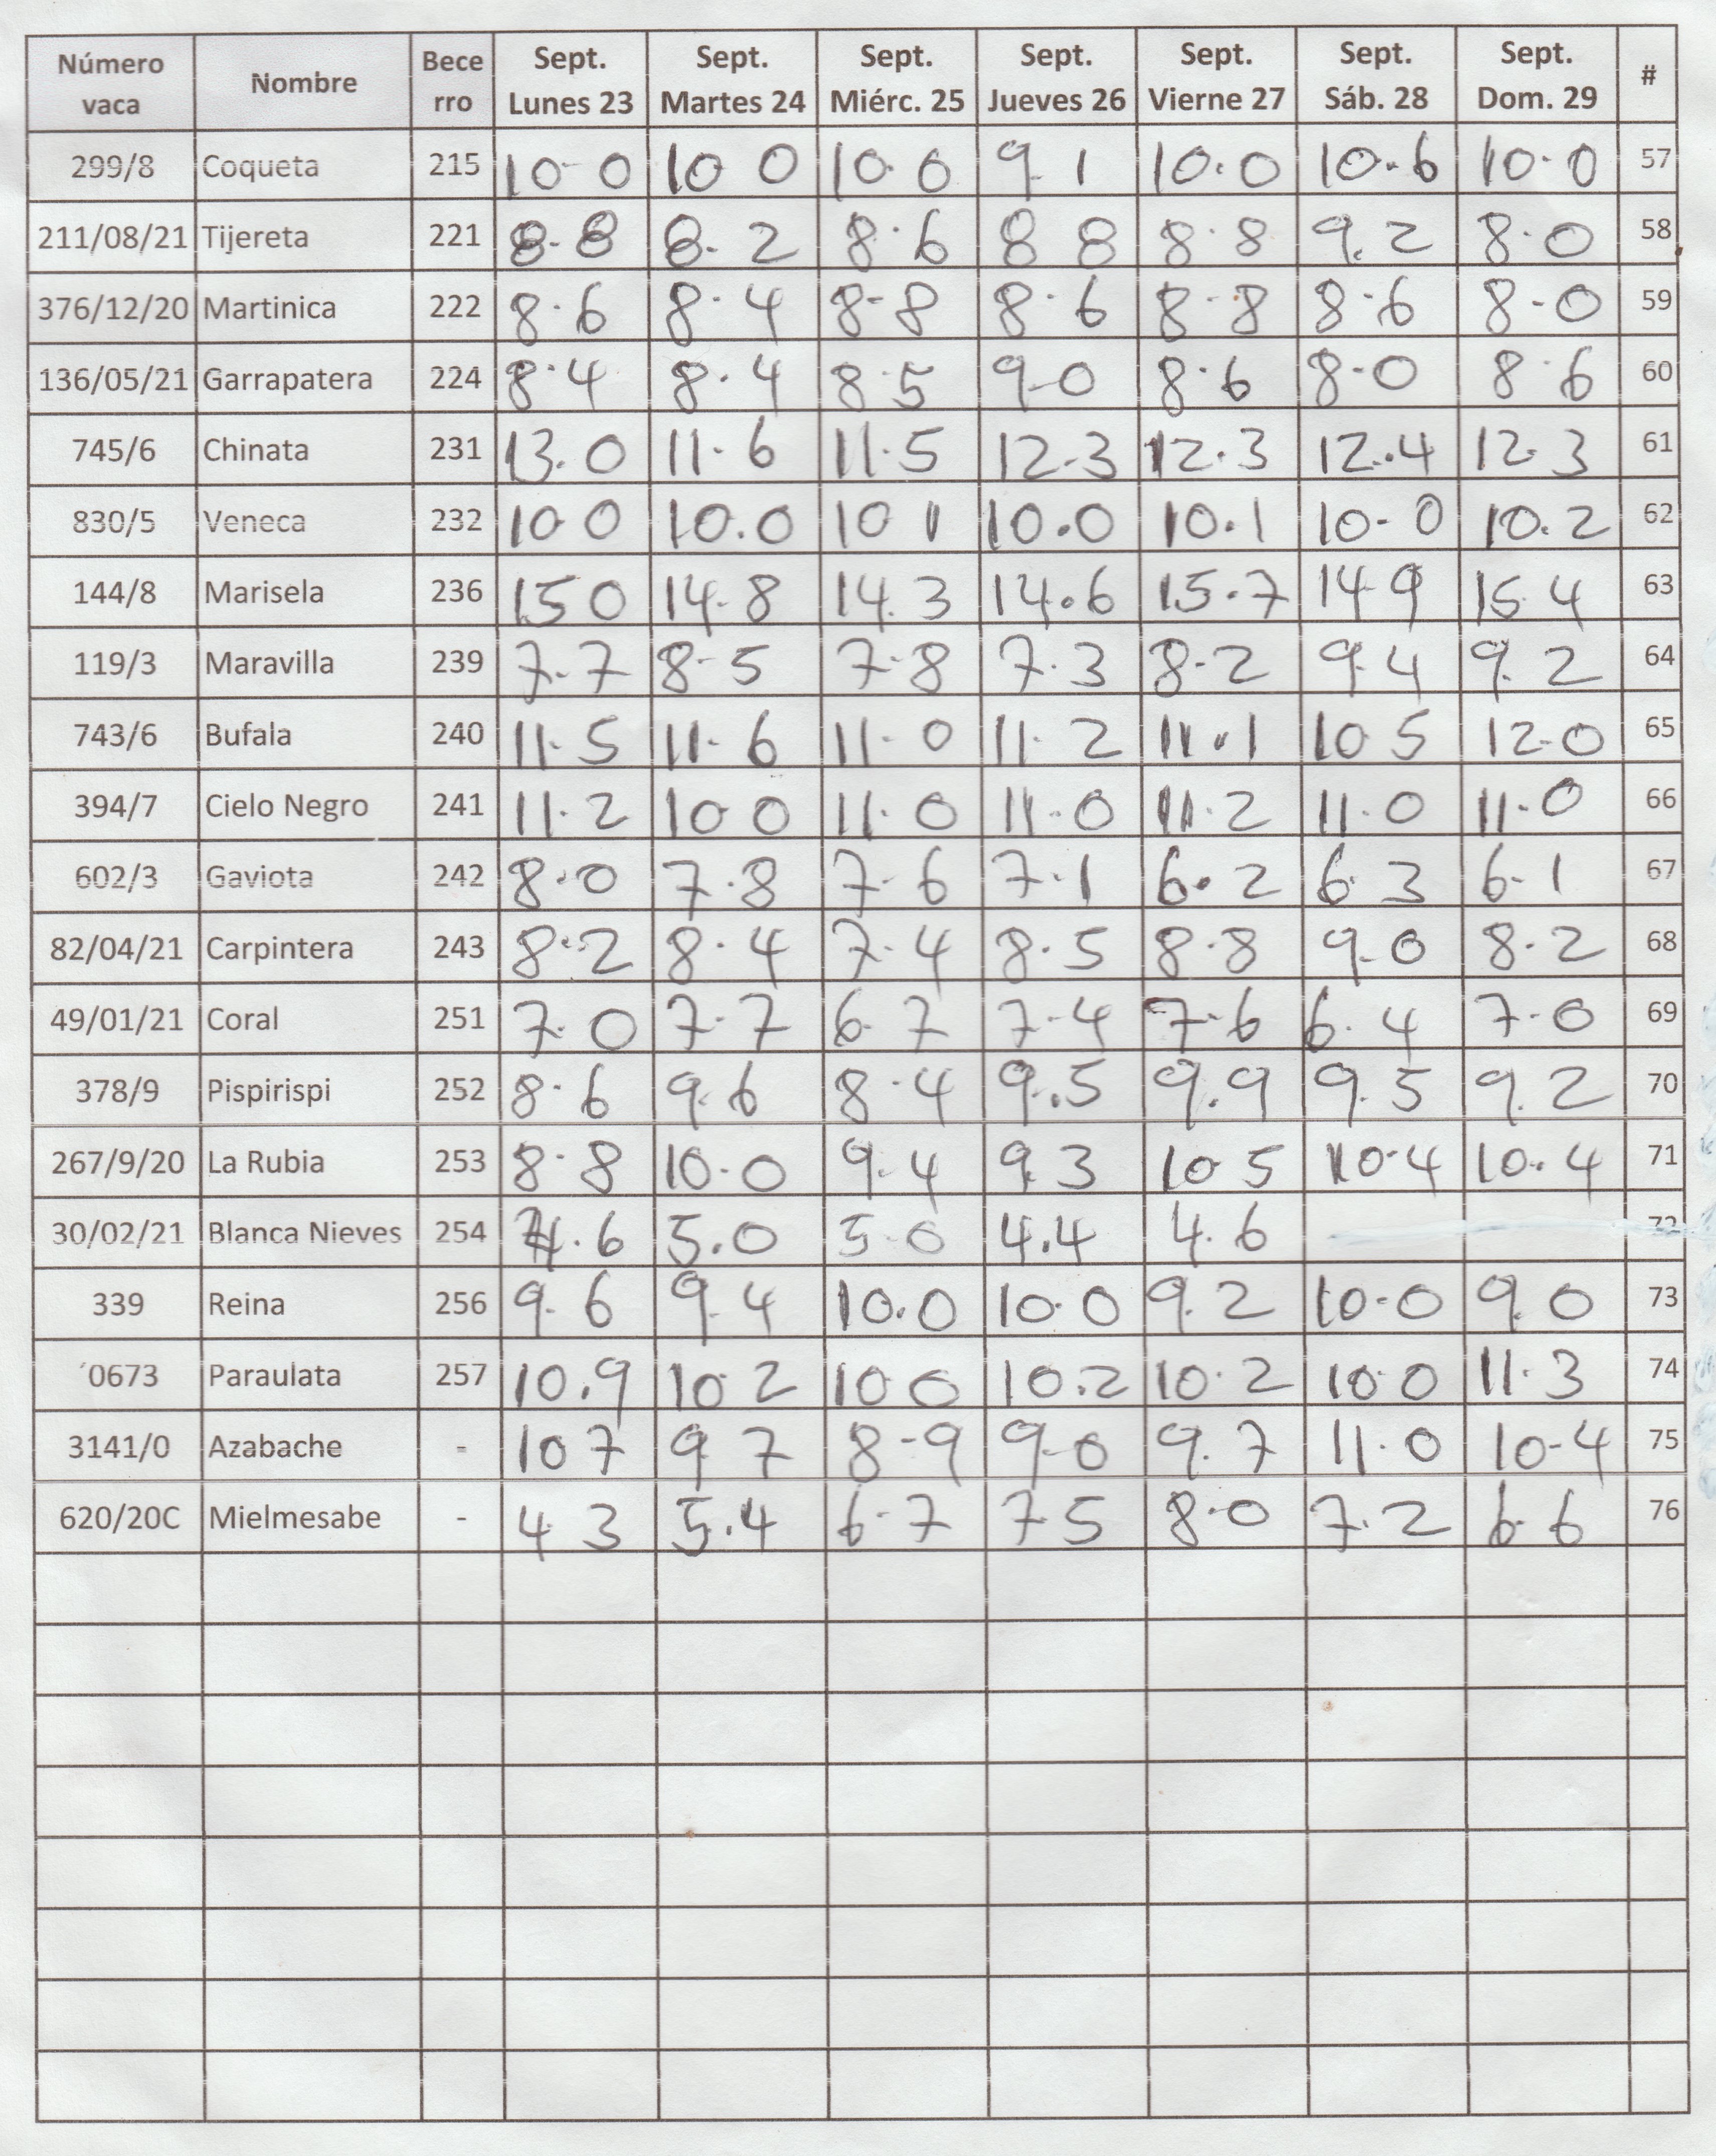 Número vaca Nombre Bece rro Sept. Lunes 23 Sept. Martes 24 Sept. Miérc. 25 Sept. Jueves 26 Sept. Vierne 27 Sept. Sáb. 28 Sept. Dom. 29 #
299/8 Coqueta 215 10-0 10 0 10.0 9.1 10.0 10.6 10.0 57
211/08/21 Tijereta 221 8.8 8.2 8.6 8 8 8.8 9.2 8.0 58
376/12/20 Martinica 222 8.6 8.4 8-8 8.6 8-8 8.6 8-0 59
136/05/21 Garrapatera 224 8.4 8.4 8.5 9-0 8.6 8-0 8.6 60
745/6 Chinata 231 13.0 11.6 11.5 12.3 12.3 12.4 12.3 61
830/5 Veneca 232 10 0 10.0 10 1 10.0 10.1 10-0 10.2 62
144/8 Marisela 236 15 0 14.8 14.3 14.6 15.7 14 9 15.4 63
119/3 Maravilla 239 7.7 8-5 7.8 7.3 8.2 9.4 9.2 64
743/6 Bufala 240 11.5 11.6 11.0 11.2 11.1 10 5 12-0 65
394/7 Cielo Negro 241 11.2 10 0 11.0 11.0 11.2 11.0 11.0 66
602/3 Gaviota 242 8.0 7.8 7.6 7.1 6.2 6.3 6.1 67
82/04/21 Carpintera 243 8.2 8.4 7.4 8.5 8.8 9-0 8.2 68
49/01/21 Coral 251 7.0 7.7 6.7 7-4 7.6 6.4 7.0 69
378/9 Pispirispi 252 8.6 9.6 8.4 9.5 9.9 9.5 9.2 70
267/9/20 La Rubia 253 8.8 10.0 9.4 9.3 10 5 10.4 10.4 71
30/02/21 Blanca Nieves 254 4.6 5.0 5.0 4.4 4.6 72
339 Reina 256 9.6 9.4 10.0 10.0 9.2 10-0 9.0 73
´0673 Paraulata 257 10.9 10 2 10 0 10.2 10.2 10.0 11.3 74
3141/0 Azabache - 10 7 9 7 8-9 9-0 9.7 11.0 10-4 75
620/20C Mielmesabe - 4 3 5.4 6.7 7 5 8.0 7.2 6.6 76